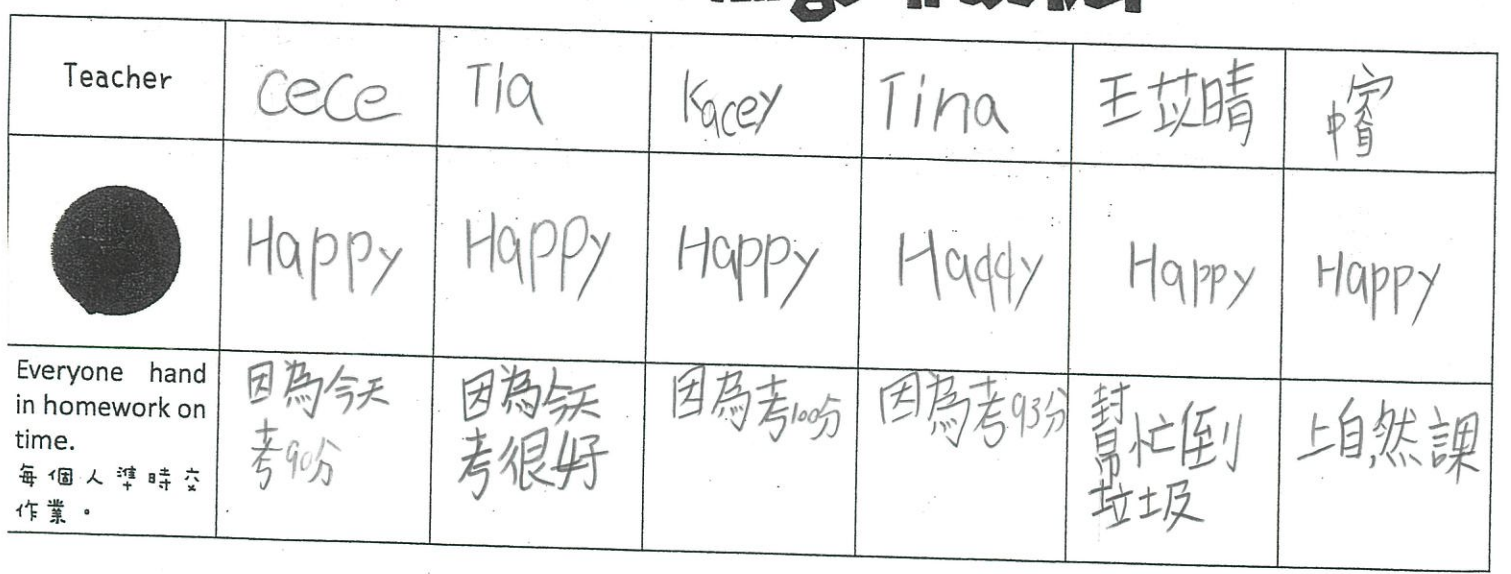 Teacher
CeCe
Tia
Kacey
Tina
王苡晴
Happy
Happy
Happy
Haqqy
Happy
Happy
Everyone hand
in homework on
time.
每個人準時交
作業。
因為今天
考90分
因為今天
考很好
因為考100分
因為考93分
幫忙倒
垃圾
上自然課